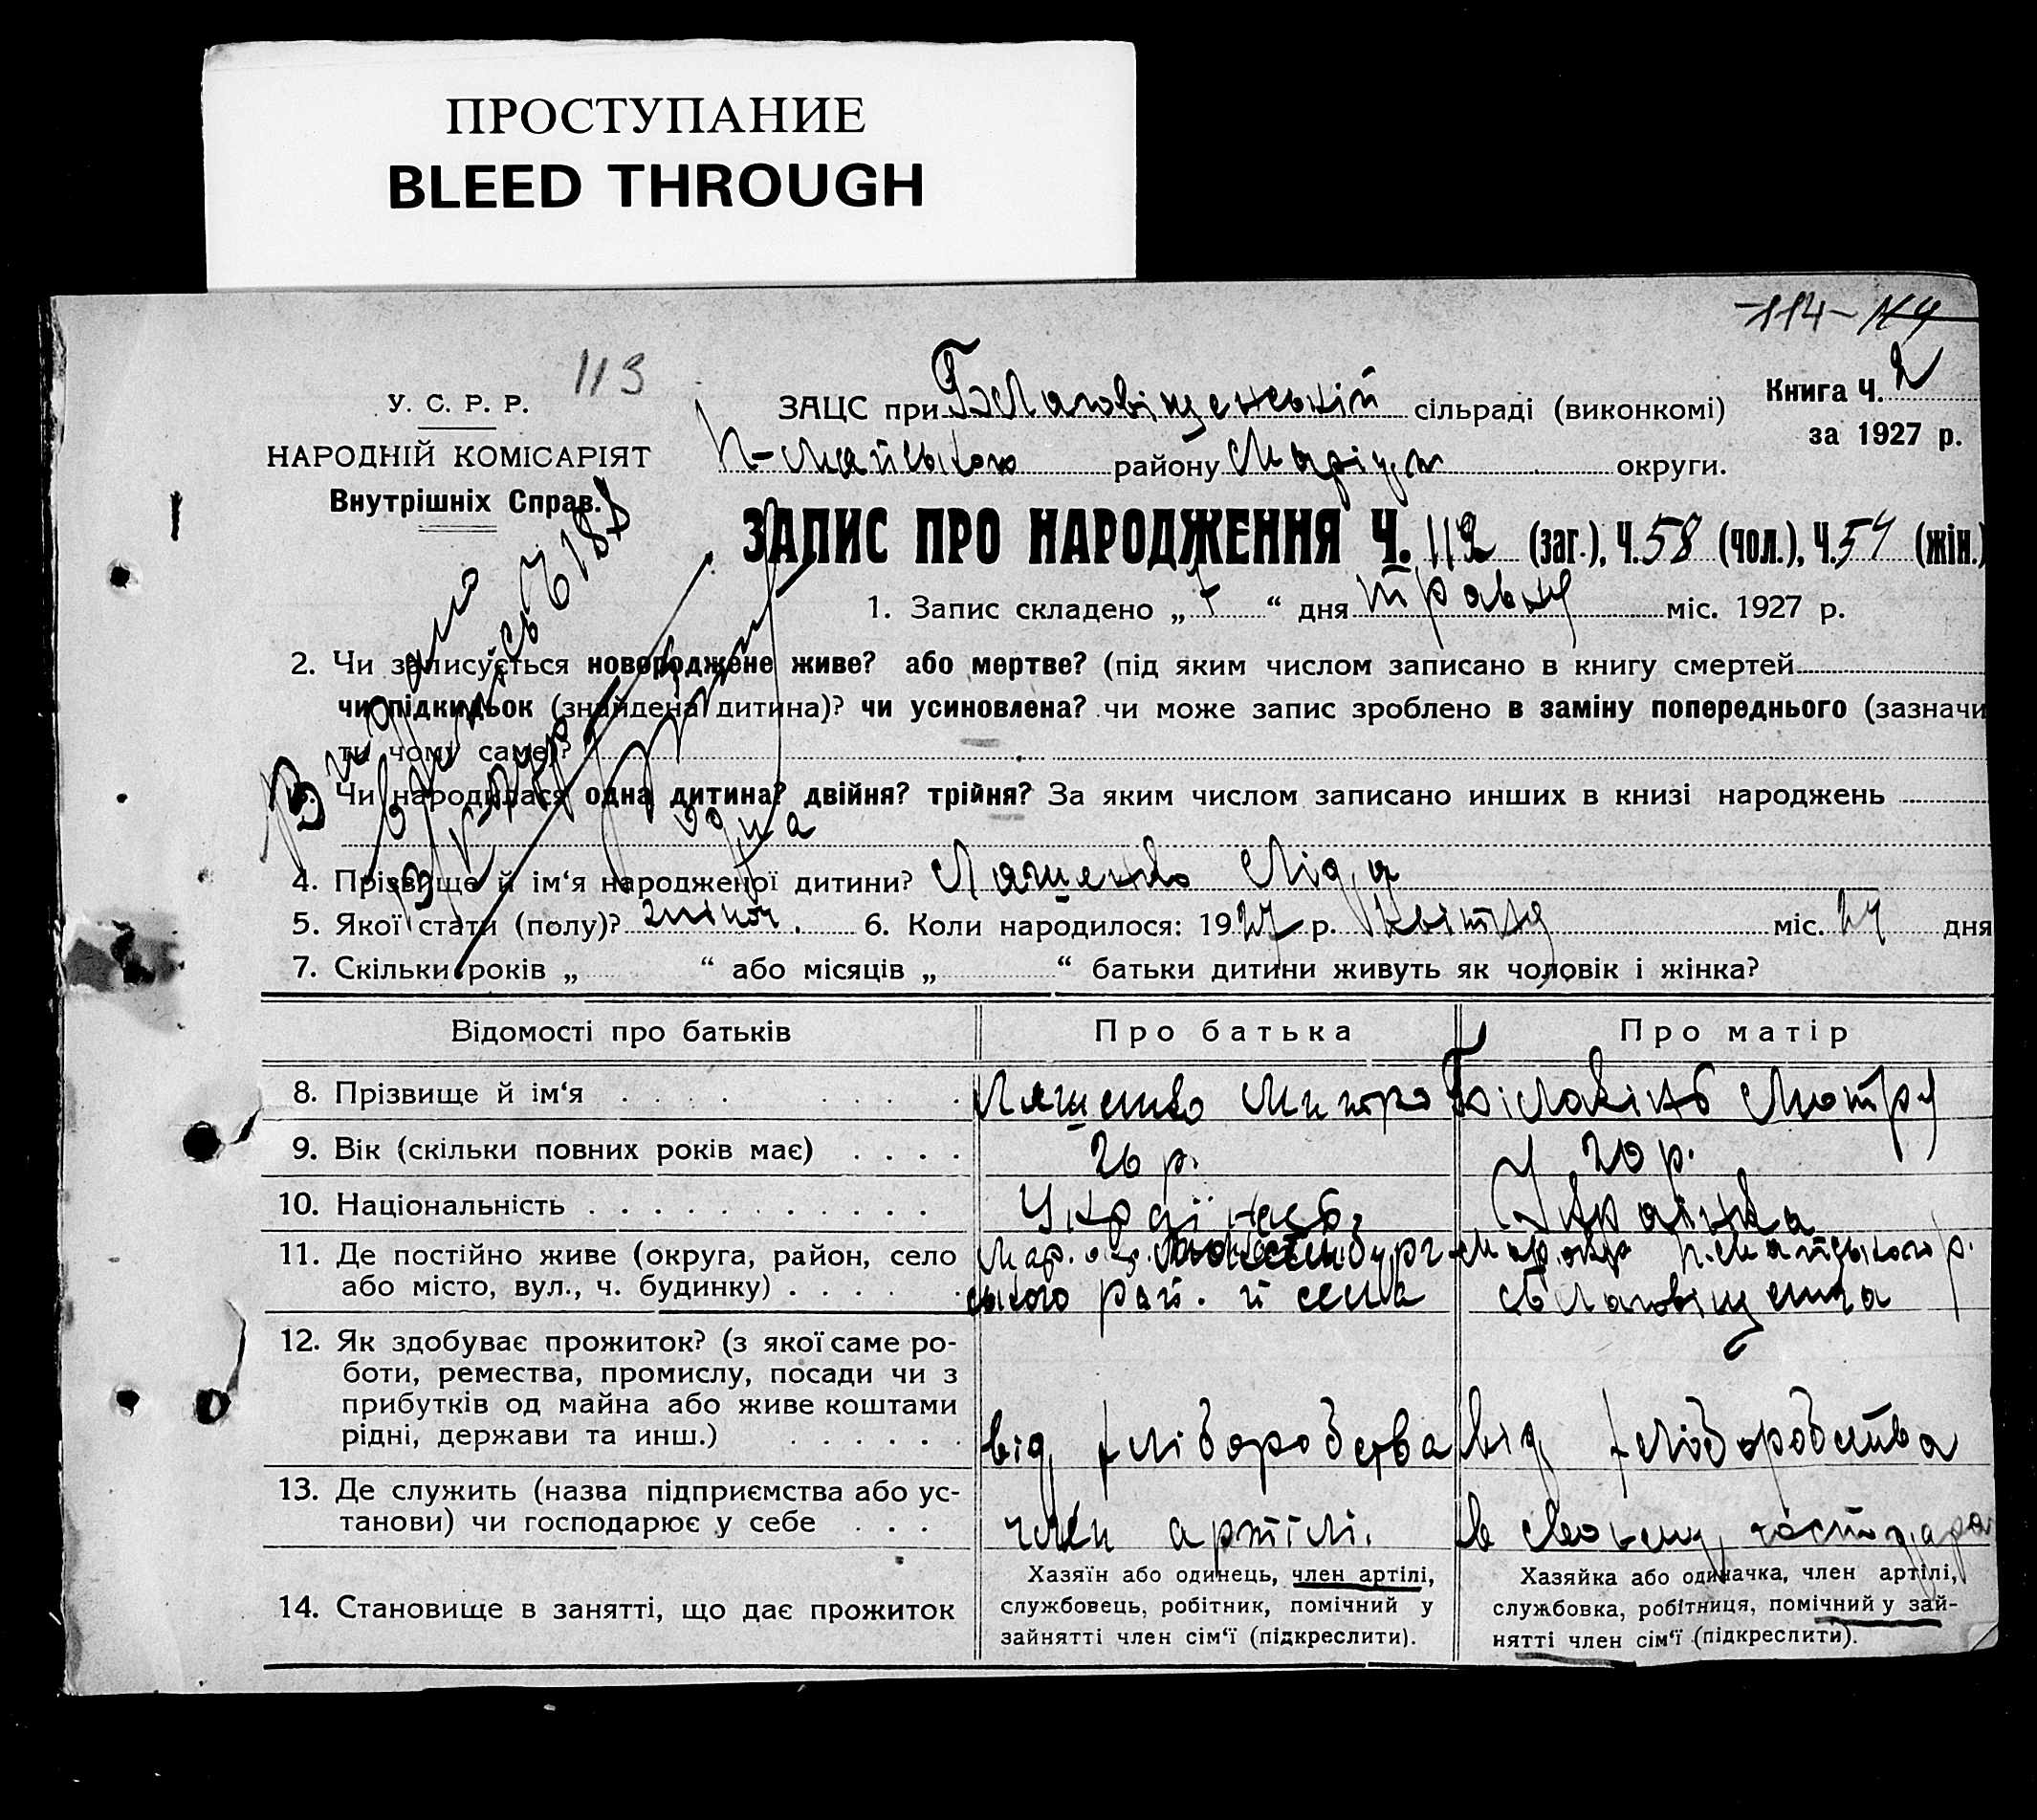 ПРОСТУПАНИЕ
BLEED THROUGH
-114-
113
У. С. Р. Р.
НАРОДНІЙ КОМІСАРІЯТ
Внутрішніх Справ.
ЗАЦС при Благовіщенській сільраді (виконкомі)
П-Майського району Маріуп округи.
Книга Ч. 2
за 1927 р.
ЗАПИС ПРО НАРОДЖЕННЯ Ч. 112 (заг.), Ч. 58 (чол.), Ч. 54 (жін.)
1. Запис складено „ “ дня травня міс. 1927 р.
2. Чи записується новороджене живе? або мертве? (під яким числом записано в книгу смертей
чи підкидьок (знайдена дитина)? чи усиновлена? чи може запис зроблено в заміну попереднього (зазначи
ти чому саме)?
3. Чи народилася одна дитина? двійня? трійня? За яким числом записано инших в книзі народжень
одна
4. Прізвище й ім‘я народженої дитини? Ляшенко Ліда
5. Якої стати (полу)? жіноч. 6. Коли народилося: 1927 р. квітня міс. 24 дня
7. Скільки років „ “ або місяців „ “ батьки дитини живуть як чоловік і жінка?
Відомості про батьків Про батька Про матір
8. Прізвище й ім‘я Ляшенко Митро Мотря
9. Вік (скільки повних років має) 26 р. 20 р.
10. Національність Українець Українка
11. Де постійно живе (округа, район, село Мар. П.Майського р.
або місто, вул., ч. будинку) ського рай. с Благовіщенка
12. Як здобуває прожиток? (з якої саме ро-
боти, ремества, промислу, посади чи з
прибутків од майна або живе коштами
рідні, держави та инш.) від хліборобства від хліборобства
13. Де служить (назва підприємства або ус-
танови) чи господарює у себе член артілі. в своєму господар
14. Становище в занятті, що дає прожиток
Хазяїн або одинець, член артілі,
службовець, робітник, помічний у
зайнятті член сім‘ї (підкреслити).
Хазяйка або одиначка, член артілі,
службовка, робітниця, помічний у зай-
нятті член сім‘ї (підкреслити).